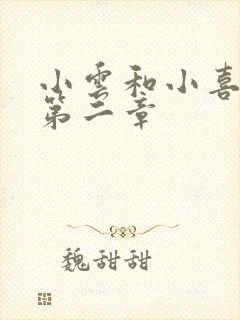 小雲和小喜
第二章
魏甜甜